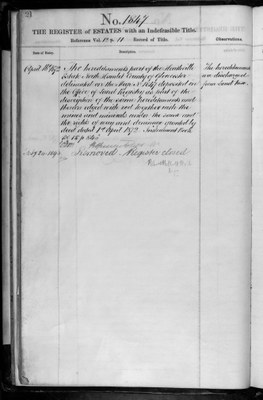 21
No. 1647
THE REGISTER of ESTATES with an Indefeasible Title.
Reference Vol. 12 &
Record of Title.
Date of Entry.
Description.
Observations.
April 10th 1872
The hereditaments part of the
Estate South Hamlet County of Gloucester
delineated on the Map No. 1647 deposited in
the Office of Land Registry as part of the
description of the same hereditaments and
thereon edged with red together with the
mines and minerals under the same and
the rights of way and drainage granted by
deed dated 1st April 1872. Instrument Book
The hereditaments
are discharged
from Land Tax.
Removed. Register closed